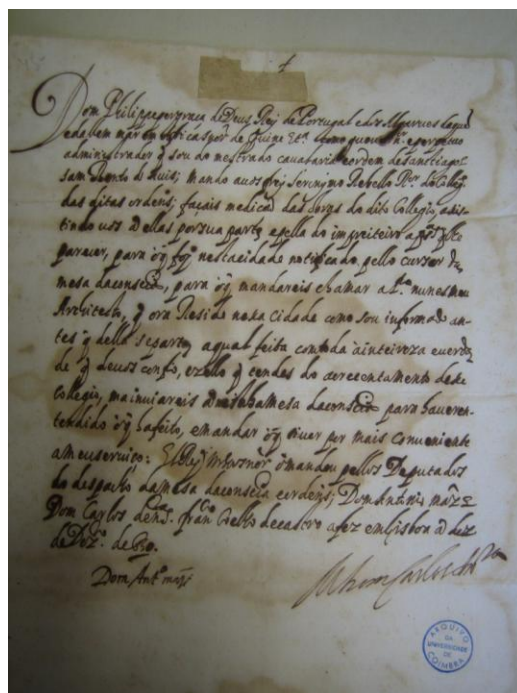 Dom Philippe per graça de Deus Rey de Portugal e dos Algarues daque
e dalem mar em Africa Snor de Guine Etª. como gouernr. e perpetuo
administrador q̃ sou do mestrado cauallaria e ordem de Santhiago
sam Bento de Auis; mando a uos frey Jeronymo Rebello Rtor do Colleg
das ditas ordens; façais medicaõ das obras do dito Collegio, asis
tindo uos a ellas por sua parte, e pella do impreiteiro a
parecer, para o q̃ nesta cidade notificado pello cursor da
mesa da consciª, para o q̃ mandareis chamar a Pº nunes meu
Architecto, q̃ ora Reside nesta cidade como sou informado an
tes q̃ della se parta, a qual feita com toda a inteireza e uerda
de q̃ de uos confio, e zello q̃ tendes do acrecentamento desse
Collegio, ma inuiareis a minha mesa da consciª para hauer en
tendido o q̃ ha feito, e mandar o q̃ ouuer por mais conueniente
a meu seruiço: El Rey nosso snor o mandou pellos Deputados
do despacho da mesa da consciª e ordens; Dom Antonio mãz
Dom Carlos de nrª. franco Coelho de castro a fez em Lisboa a dez
de Dezº. de
Dom Antº mãz
Dom Carlos de
ARQUIVO
DA
UNIVERSIDADE
DE
COIMBRA